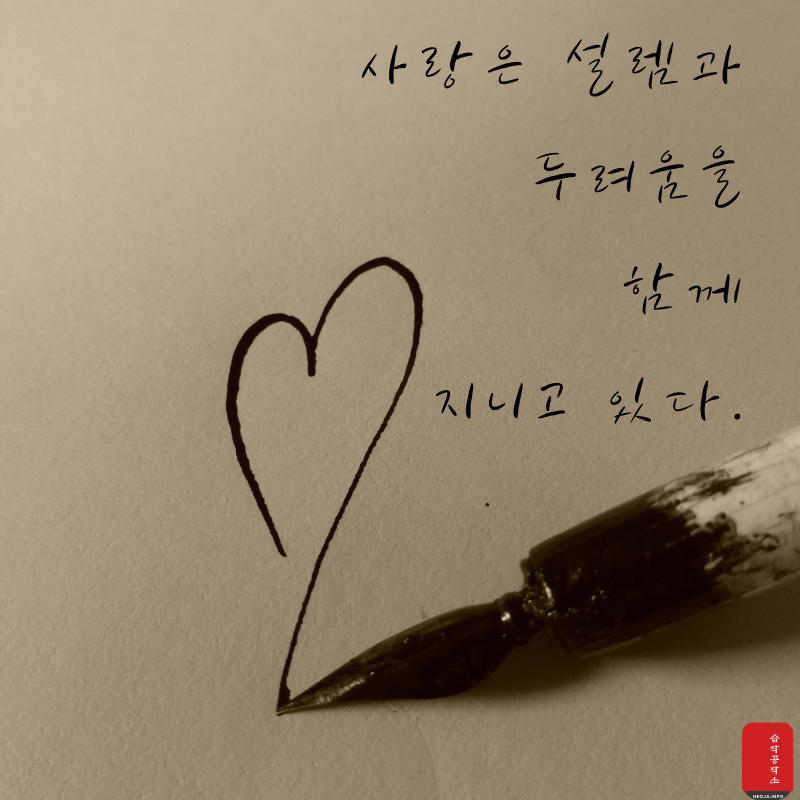 사랑은 설렘과
두려움을
함께
지니고 있다.
습작공작소
HEOJA.INFO